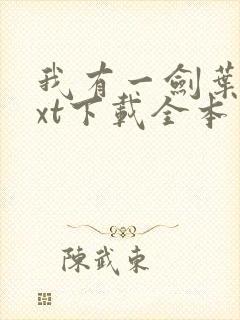 我有一劍葉
xt下載全本
陳武東